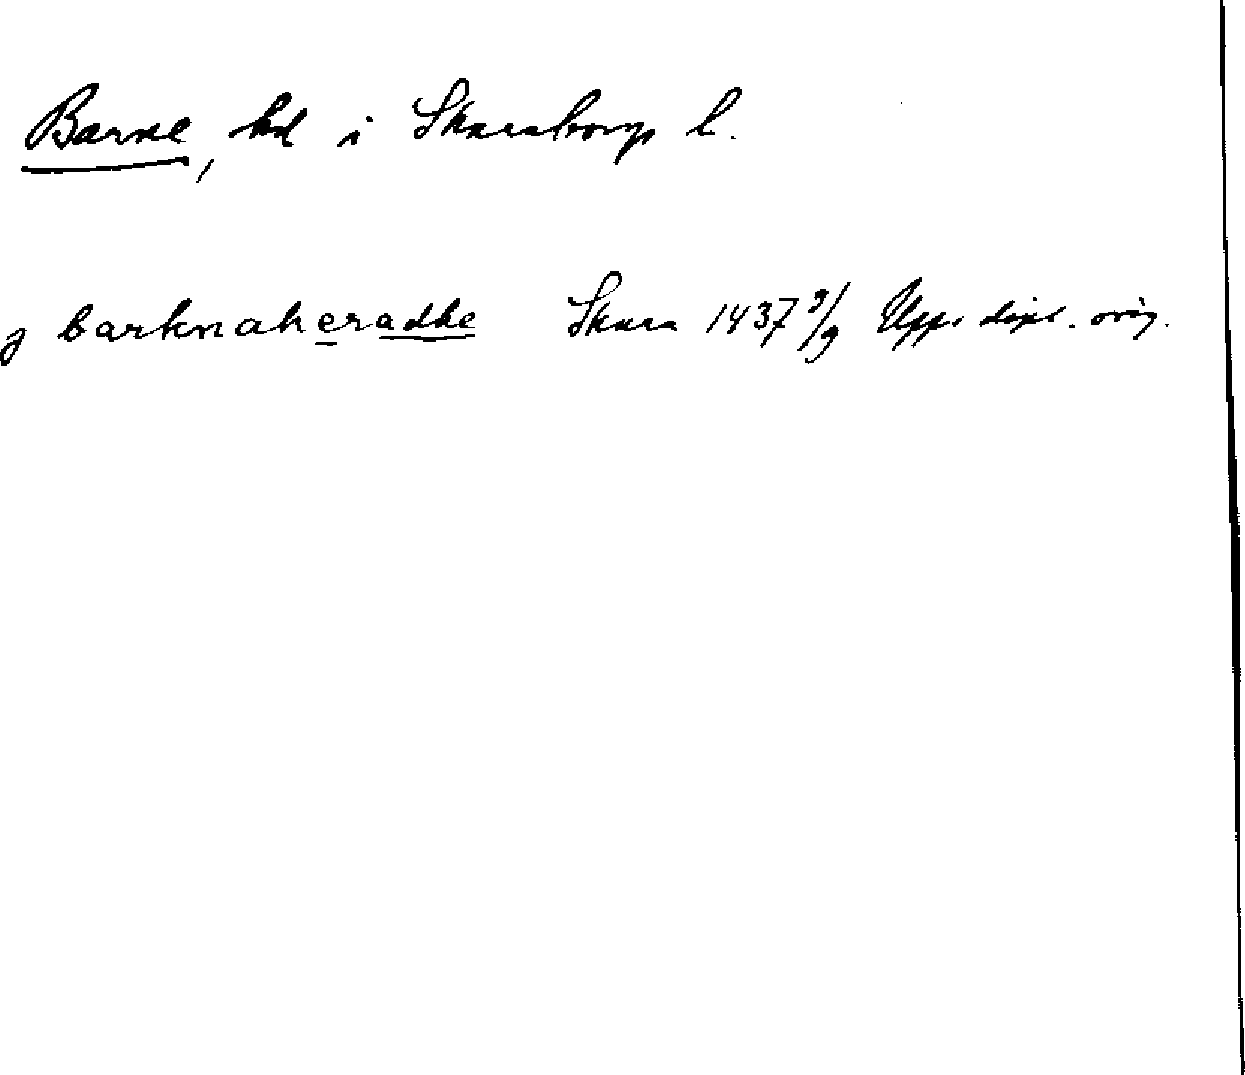 Barne, hd i Skaraborgs l.
j barknaheradhe Skara 1437 9/9 Upps. dipl. orig.